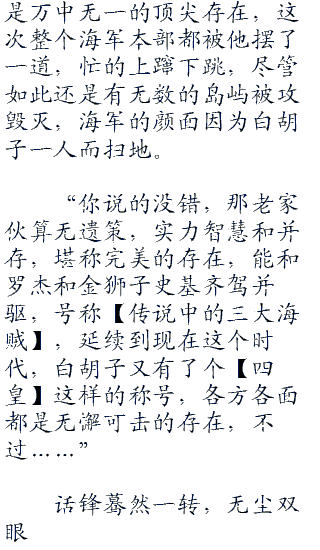 是万中无一的顶尖存在，这
次整个海军本部都被他摆了
一道，忙的上蹿下跳，尽管
如此还是有无数的岛屿被攻
毁灭，海军的颜面因为白胡
子一人而扫地。
“你说的没错，那老家
伙算无遗策，实力智慧和并
存，堪称完美的存在，能和
罗杰和金狮子史基齐驾并
驱，号称【传说中的三大海
贼】，延续到现在这个时
代，白胡子又有了个【四
皇】这样的称号，各方各面
都是无懈可击的存在，不
过……”
话锋蓦然一转，无尘双
眼